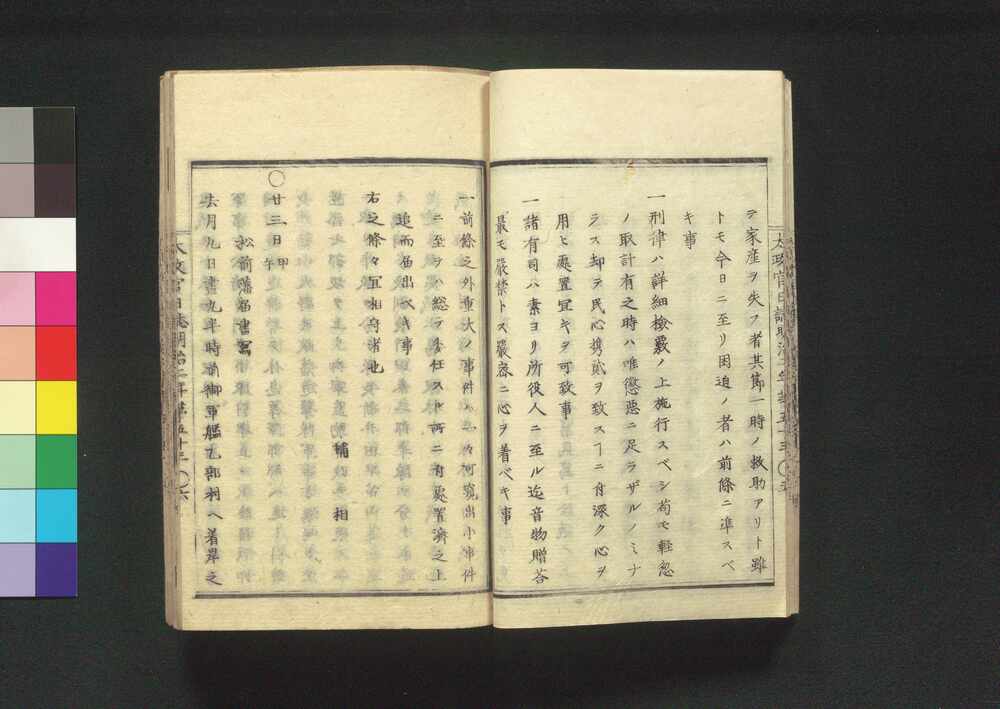 ヲ家産ヲ失フ者其節一時ノ救助アリト雖
トモ今日ニ至リ困迫ノ者ハ前條ニ準スベ
キ事
一刑律ハ詳細檢覈ノ上施行スベシ苟モ軽忽
ノ取計有之時ハ唯懲悪ニ足ラザルノミナ
ラス却テ民心携貳ヲ致スヿニ付深ク心ヲ
用ヒ處置宜キヲ可致事
一諸有司ハ素ヨリ所役人ニ至ル迄音物贈荅
最モ嚴禁トス嚴密ニ心ヲ着ベキ事
太政官日誌明治二年第五十三 〇五
一前條之外重大ノ事件ハ
伺窺出小事件
ニ至テハ総テ委任スト所ニ付處置濟之上
追而届出
キ事
右之條々冝相守者也
輔相
〇廿三日甲午
松前藩届書冩
去月九日晝九半時
御軍艦乙部村ヘ着岸之
太政官日誌明治二年第五十三 〇六